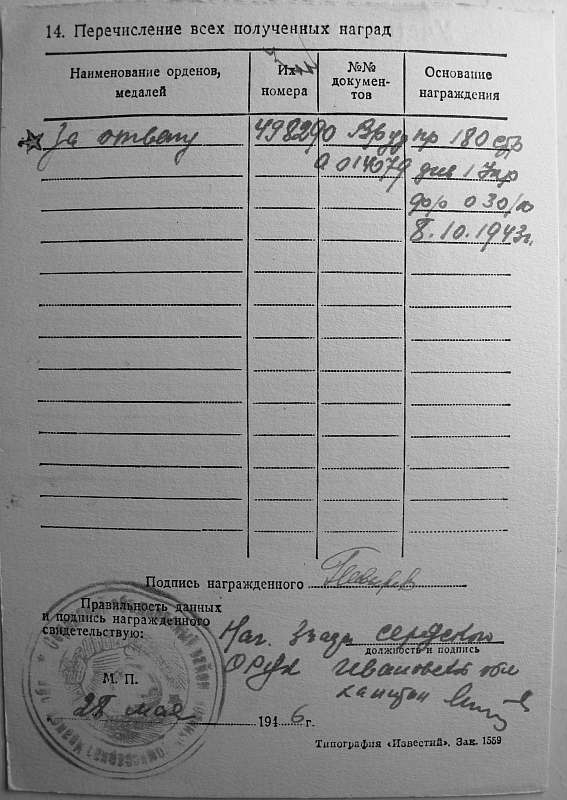 14. Перечисление всех полученных наград
Наименование орденов,
медалей
Их
номера
№№
докумен-
тов
Основание
награждения
За отвагу 498290 Вруд пр 180 сгр
А 014079 див 1 Укр
ф-о/о 030/н
8.10.1943г.
Подпись награжденного
Правильность данных
и подпись награжденного
свидетельствую:
Нач. 3 части
должность и подпись
Ивановской обл
капитан
М. П.
28 мая 1946 г.
Типография «Известий». Зак. 1559